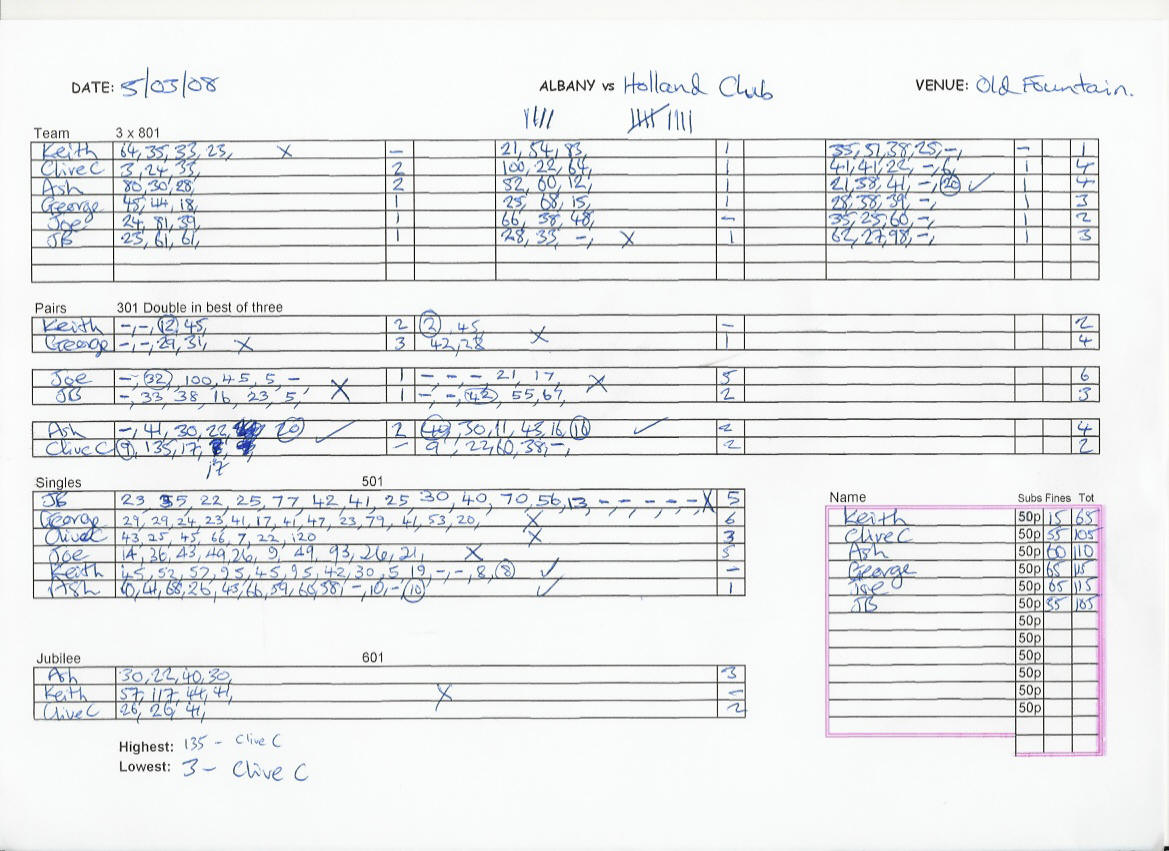 DATE: 5/03/08 ALBANY vs Holland Club VENUE: Old Fountain.
Team 3 x 801
Keith 64, 35, 33, 23, X – 21, 54, 83, 1 35, 51, 38, 25, –, – 1
Clive C 3, 24, 33, 2 100, 22, 64, 1 41, 41, 22, –, 6, 1 4
Ash 80, 30, 28, 2 52, 60, 12, 1 21, 58, 41, –, 20 ✓ 1 4
George 45, 44, 18, 1 25, 68, 15, 1 28, 38, 39, –, 1 3
Joe 24, 81, 39, 1 66, 38, 48, – 35, 25, 60, –, 1 2
JB 25, 61, 61, 1 28, 33, –, X 1 62, 27, 98, –, 1 3
Pairs 301 Double in best of three
Keith –, –, 12, 45, 2 2, 45, – 2
George –, –, 29, 31, X 3 42, 28 X 1 4
Joe –, 32, 100, 45, 5, – X 1 – – – 21, 17, X 5 6
JB –, 33, 38, 16, 23, 5, 1 –, –, 42, 55, 67, 2 3
Ash –, 41, 30, 22, 20 ✓ 2 40, 30, 11, 43, 16, 16 ✓ 2 4
Clive C 9, 135, 17, – 9, 22, 60, 38, –, 2 2
17
Singles 501
JB 23, 35, 22, 25, 77, 42, 41, 25, 30, 40, 70, 56, 13, – – – – – X 5
George 29, 29, 24, 23, 41, 17, 41, 47, 23, 79, 41, 53, 20, X 6
Clive C 43, 25, 45, 66, 7, 22, 120 X 3
Joe 14, 36, 43, 49, 26, 9, 49, 93, 26, 21, X 5
Keith 45, 52, 57, 95, 45, 95, 42, 30, 5, 19, –, –, 8, 8 ✓ –
Ash 41, 68, 26, 45, 66, 59, 60, 58, –, 10, –, 10 ✓ 1
Name Subs Fines Tot
Keith 50p 15 65
Clive C 50p 55 105
Ash 50p 60 110
George 50p 65 115
Joe 50p 65 115
JB 50p 105
50p
50p
50p
50p
50p
50p
Jubilee 601
Ash 30, 22, 40, 30, 3
Keith 57, 117, 44, 41, X –
Clive C 26, 26, 41, 2
Highest: 135 – Clive C
Lowest: 3 – Clive C